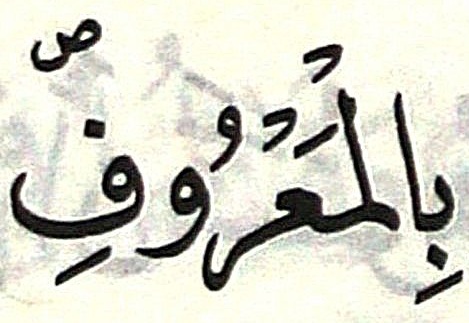 بِالْمَعْرُوفِ ۖ ص